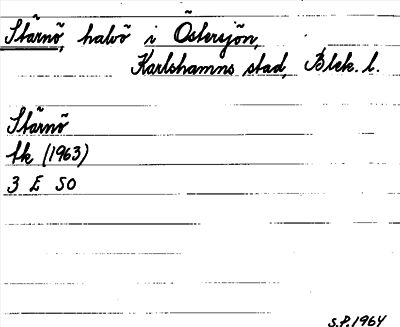 Stärnö, halvö i Östersjön,
Karlshamns stad, Blek. l.
Stärnö
tk (1963)
3 E SO
S.P. 1964